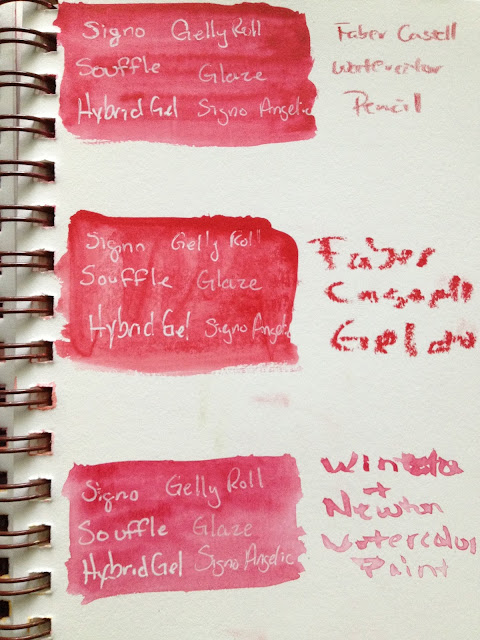 Signo Gelly Roll
Souffle Glaze
Hybrid Gel Signo Angelic
Faber Castell
watercolor
Pencil
Signo Gelly Roll
Souffle Glaze
Hybrid Gel Signo Angelic
Faber
Signo Gelly Roll
Souffle Glaze
Hybrid Gel Signo Angelic
+
Newton
Watercolor
Paint